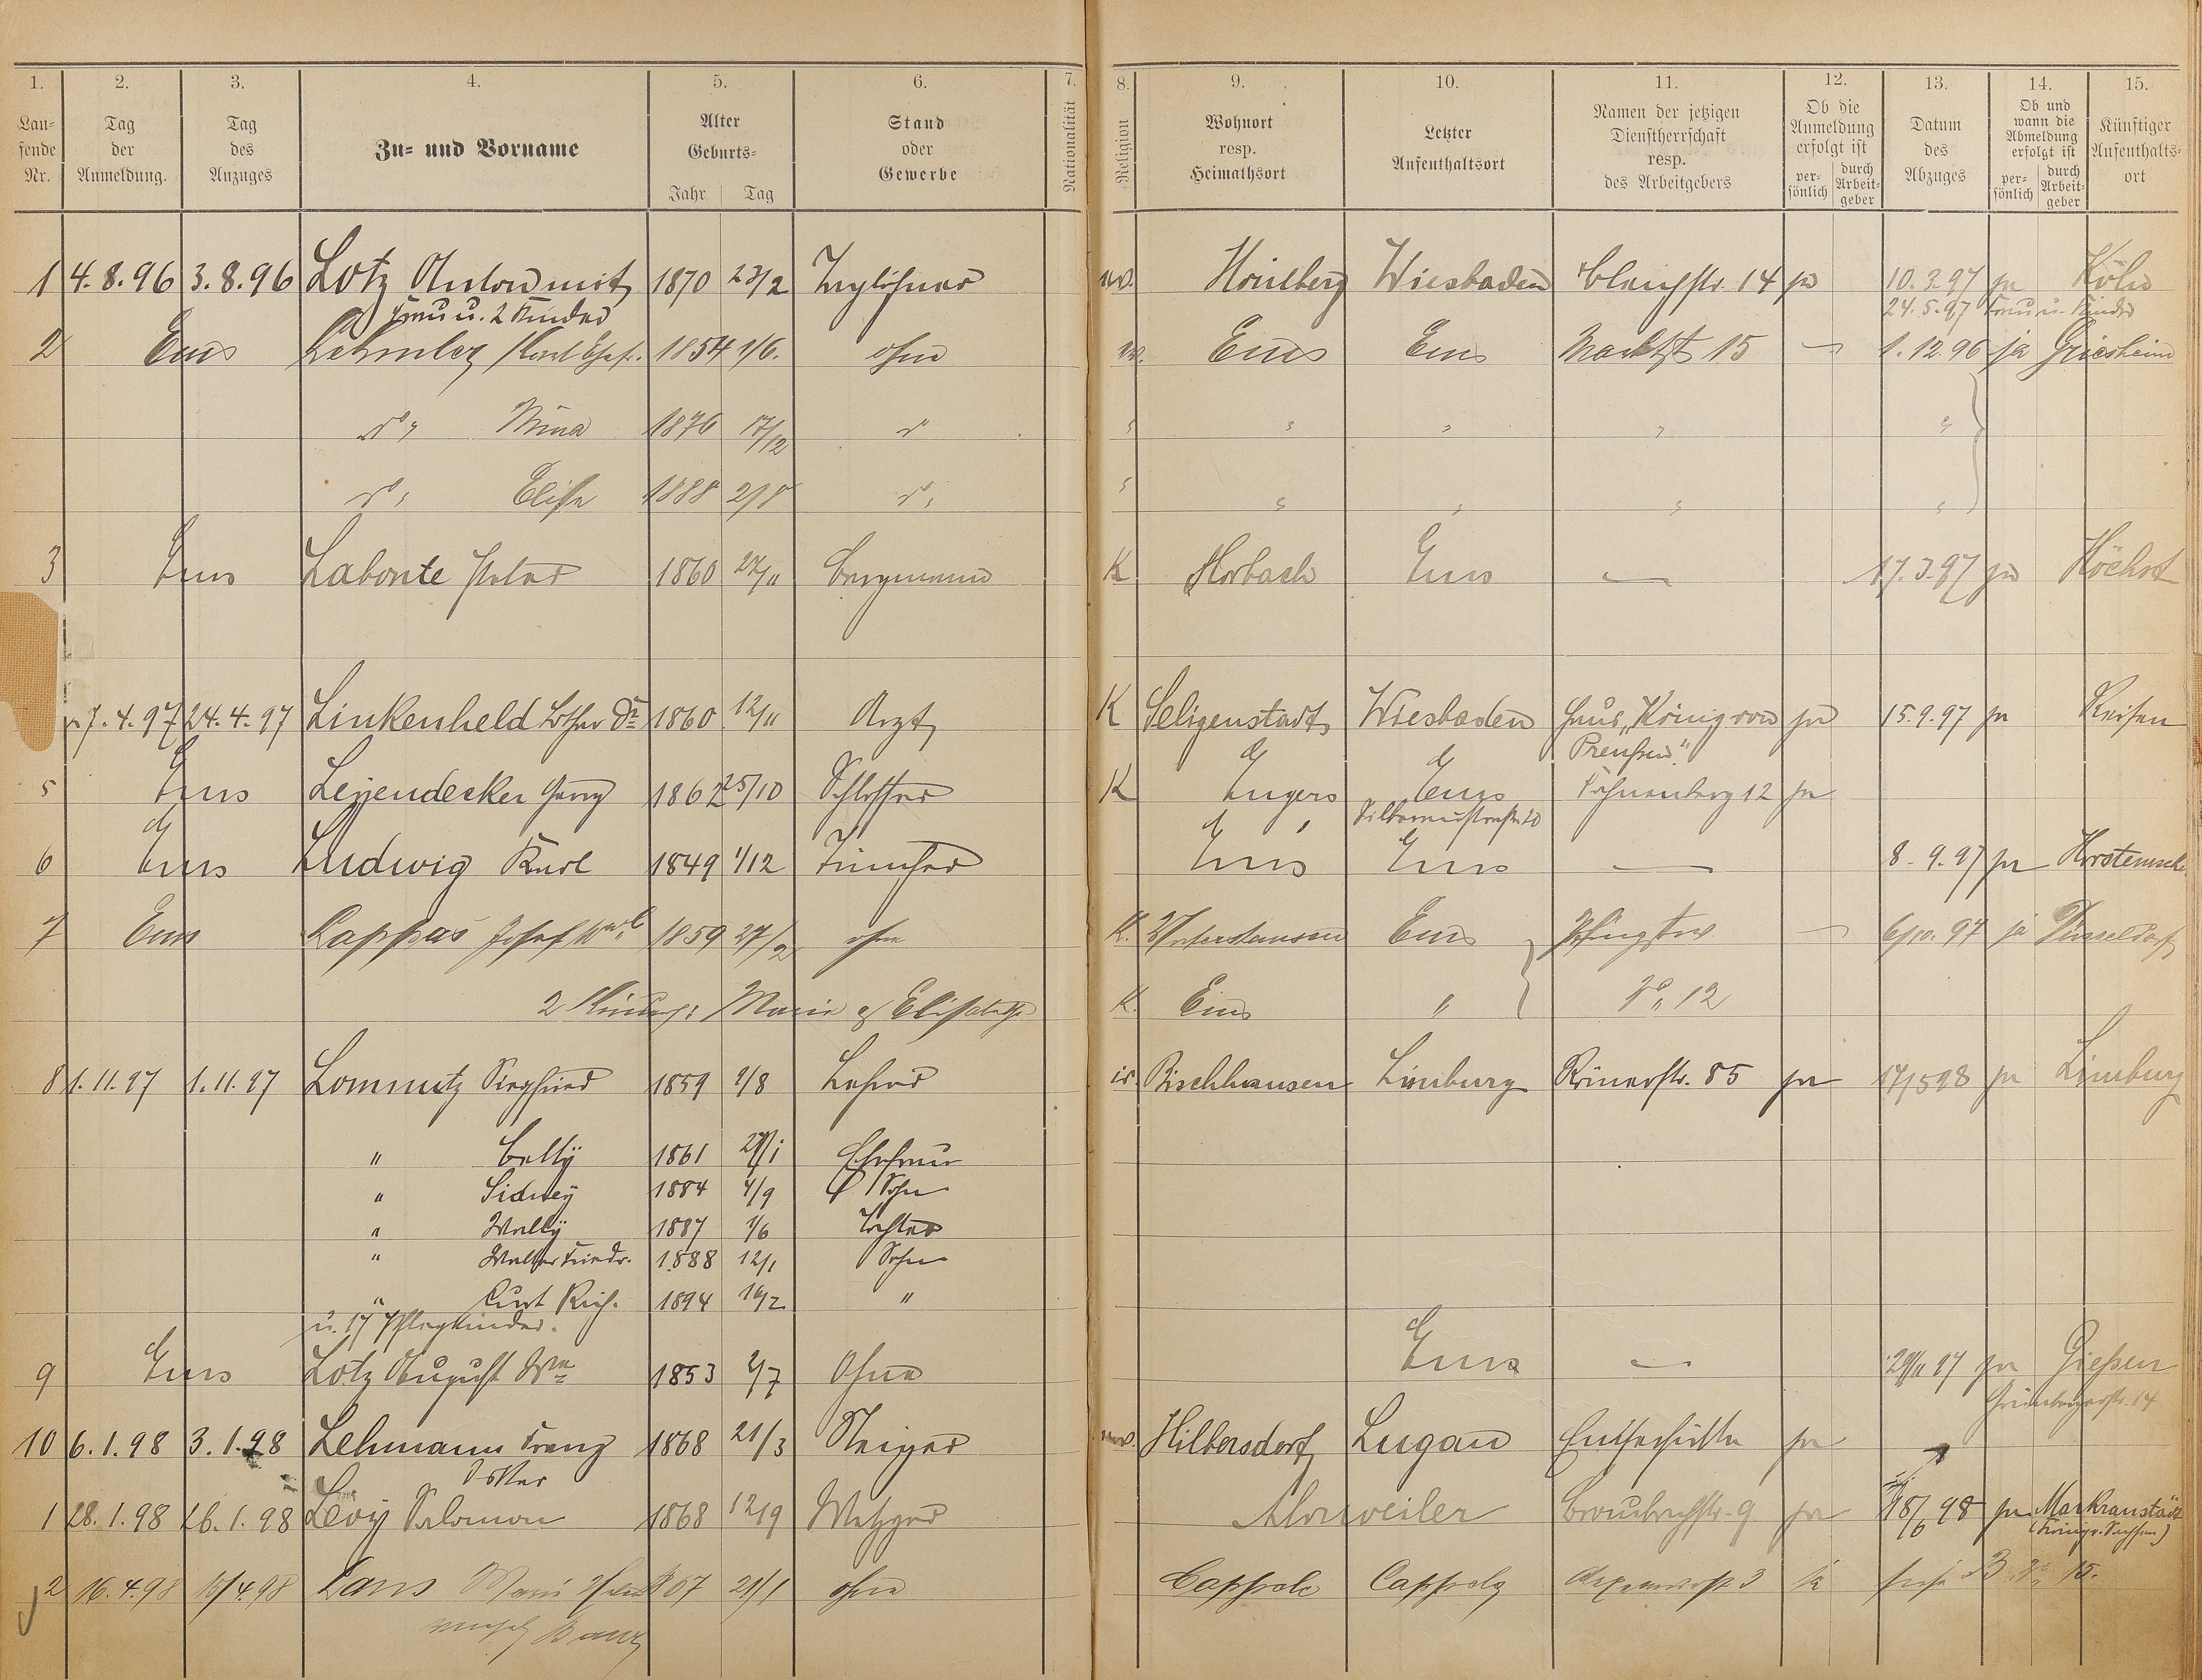 1. 2. 3. 4. 5. 6. 7. 8. 9. 10. 11. 12. 13. 14. 15.
Lau-
fende
Nr.
Tag
der
Anmeldung.
Tag
des
Anzuges
Zu- und Vorname
Alter
Geburts-
Jahr Tag
Stand
oder
Gewerbe
Nationalität
Religion
Wohnort
resp.
Heimathsort
Letzter
Aufenthaltsort
Namen der jetzigen
Dienstherrschaft
resp.
des Arbeitgebers
Ob die
Anmeldung
erfolgt ist
per-
sönlich
durch
Arbeit-
geber
Datum
des
Abzuges
Ob und
wann die
Abmeldung
erfolgt ist
per-
sönlich
durch
Arbeit-
geber
Künftiger
Aufenthalts-
ort
1 4.8.96 3.8.96 Lotz Anton mit 1870 23/2 Taglöhner Wiesbaden 14 ja 10.3.97 ja Köln
Frau u. 2 Kinder 24.5.97 Frau u. Kinder
2 Ems Karl Ehefr. 1854 1/6. ohne Ems Ems Marktstr 15 — 1.12.96 ja Griesheim
do " Mina 1876 17/12 " " " " " "
do " Elise 1888 2/8 do " " " " " "
3 Ems Labonte Peter 1860 27/11 Bergmann K Horbach Ems — 17.3.97 ja Höchst
27.4.97 24.4.97 Linkenheld Lothar Dr 1860 12/11 Arzt K Seligenstadt Wiesbaden Haus „König von ja 15.9.97 ja Reisen
Preußen."
5 Ems Leyendecker Georg 1862 25/10 Schlosser K Engers Ems 12 ja
Silberaustraße 20
6 Ems Ludwig Karl 1849 1/12 Ems Ems — 8.9.97 ja
7 Ems Lappas Josef Wwe 1859 27/2 ohne K. Ems — 6/10.97 ja Düsseldorf
2 Kinder: Marie & Elisabeth K. Ems " do " 12
8 1.11.97 1.11.97 Lomnitz Siegfried 1859 1/8 Lehrer isr. Bischhausen Limburg Römerstr. 85 ja 17/5 98 ja Limburg
" Betty 1861 27/1 Ehefrau
" Sidney 1884 4/9 Sohn
" Wally 1887 1/6 Tochter
" Walter Friedr. 1888 12/1 Sohn
" Curt Rich. 1894 16/2 "
u. 17 Pflegkinder.
9 Ems Lotz August Wwe 1853 2/7 Ohne Ems — 29/11 97 ja Gießen
Grünbergerstr. 14
10 6.1.98 3.1.98 Lehmann Franz 1868 21/3 Steiger Hilbersdorf Lugau Emserhütte ja
Oskar
1 28.1.98 26.1.98 Levy Salomon 1868 12/9 Metzger Ahrweiler Braubachstr. 9 ja 18/6 98 ja Markranstädt
(Königr. Sachsen)
2 16.4.98 15/4.98 Lans Marie 67 21/1 ohne 3 ja 15.